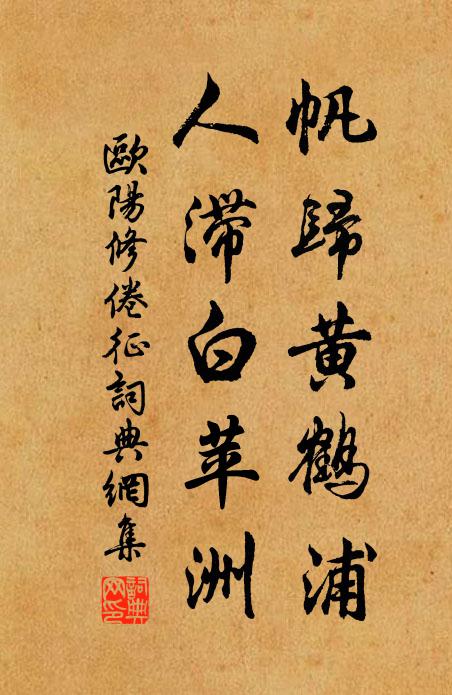 帆歸黃鶴浦
人滯白苹洲
歐陽修倦征詞典網集
詞典
网印